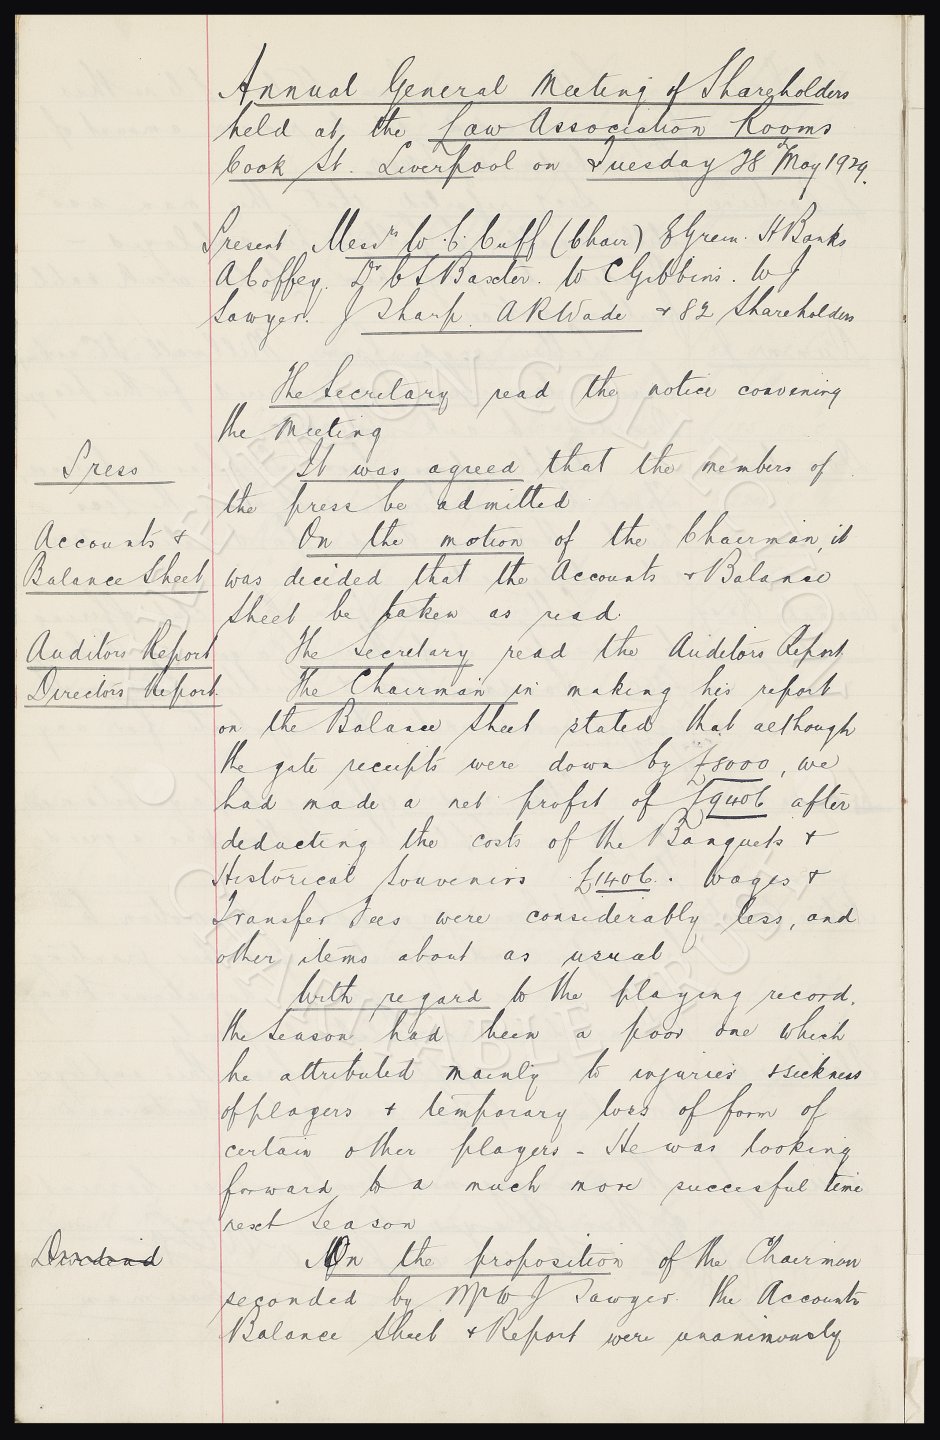 Annual General Meeting of Shareholders
held at the Law Association Rooms
Cook St. Liverpool on Tuesday 28 May 1929.
Present Messrs W. C. Cuff (Chair) E Green. H Banks
A Coffey. Dr C S Baxter. W C Gibbins. W J
Sawyer. J Sharp. A R Wade & 82 Shareholders
The Secretary read the notice convening
the Meeting
Press
It was agreed that the members of
the press be admitted
Accounts &
Balance Sheet
On the motion of the Chairman, it
was decided that the Accounts & Balance
Sheet be taken as read
Auditors Report
The Secretary read the Auditors Report
Directors Report
The Chairman in making his report
on the Balance Sheet stated that although
the gate receipts were down by £8000, we
had made a net profit of £9406 after
deducting the costs of the Banquets &
Historical Souvenirs £1406. Wages &
Transfer Fees were considerably less, and
other items about as usual
With regard to the playing record.
the Season had been a poor one which
he attributed mainly to injuries & sickness
of players & temporary loss of form of
certain other players - He was looking
forward to a much more succesful time
next Season
Dividend
On the proposition of the Chairman
seconded by Mr W J Sawyer. the Accounts
Balance Sheet & Report were unanimously